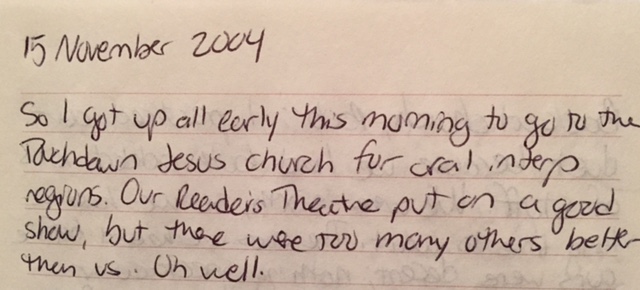 15 November 2004
So I got up all early this morning to go to the
Touchdown Jesus church for oral interp
regions. Our Readers Theatre put on a good
show, but there were too many others better
then us. Oh well.